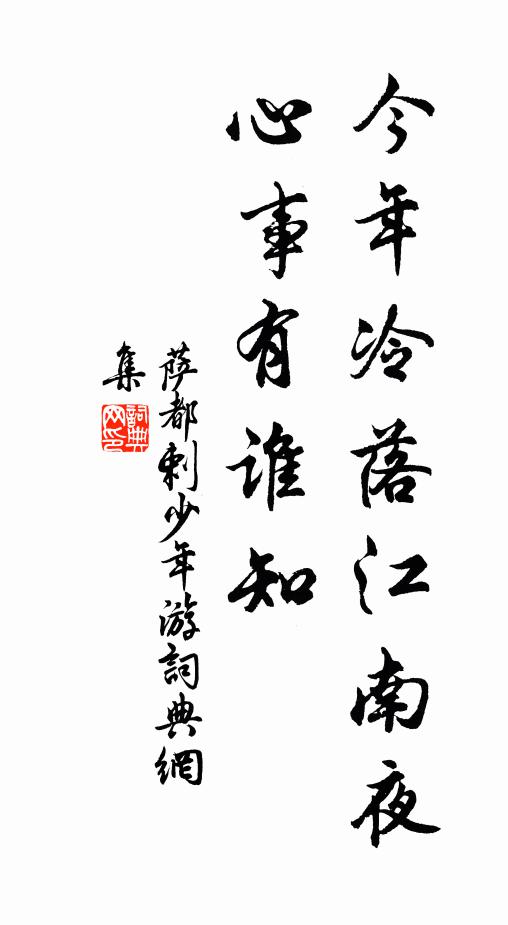 今年冷落江南夜
心事有誰知
萨都剌少年游詞典網
集
詞典网印